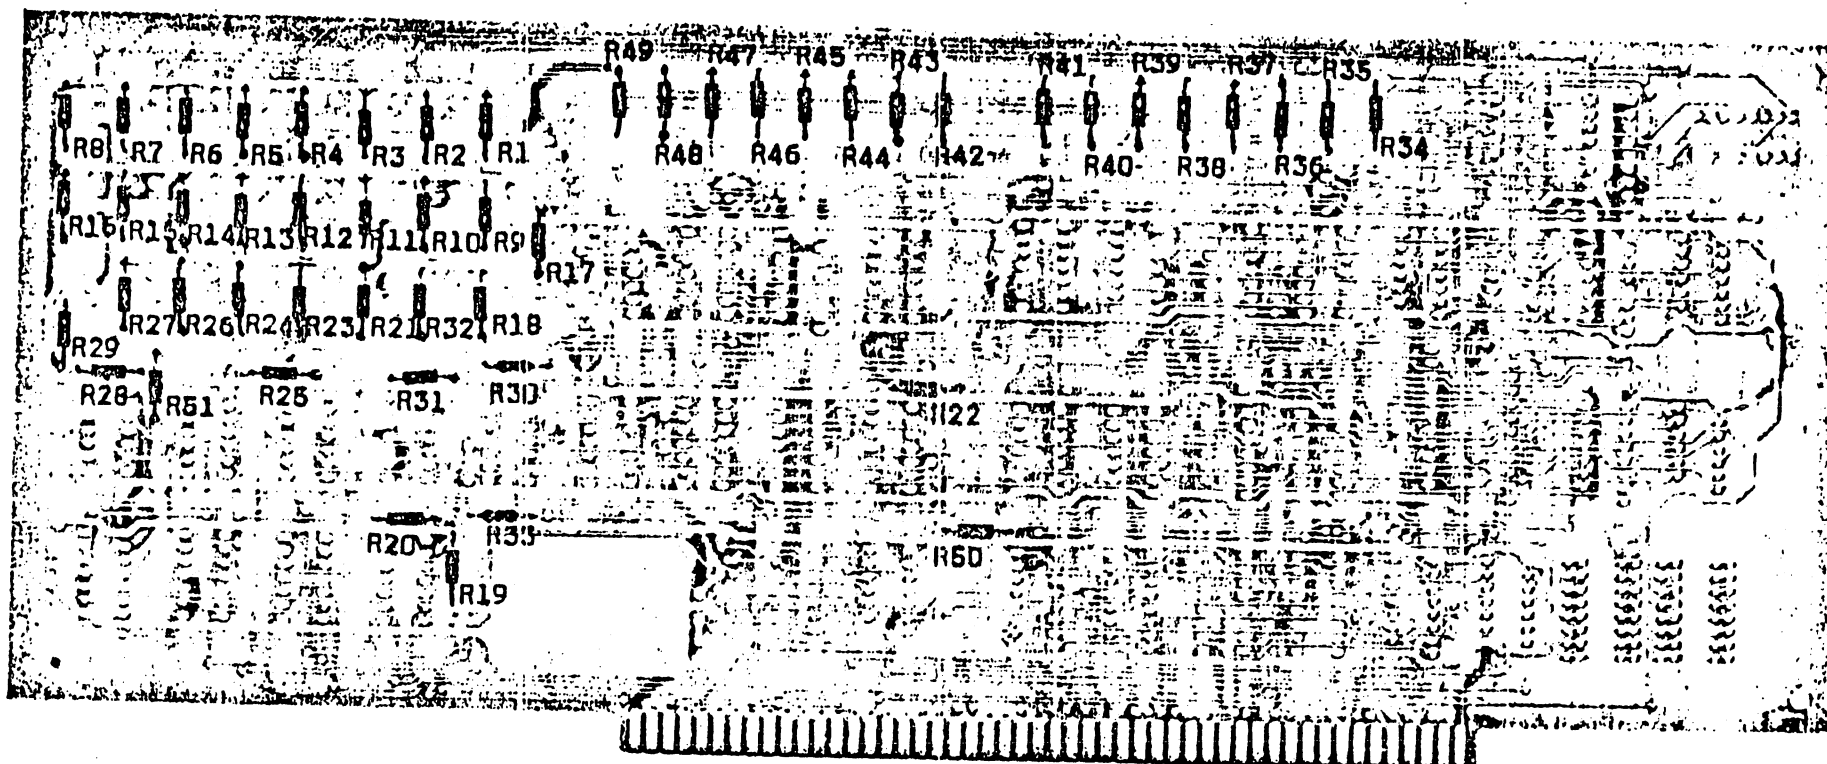 R49 R47 R45 R43 R41 R39 R37 R35
R8 R7 R6 R5 R4 R3 R2 R1 R48 R46 R44 R42 R40 R38 R36 R34
R16 R15 R14 R13 R12 R11 R10 R9
R17
R27 R26 R24 R23 R21 R32 R18
R29
R28 R51 R25 R31 R30
R22
R20 R33 R50
R19